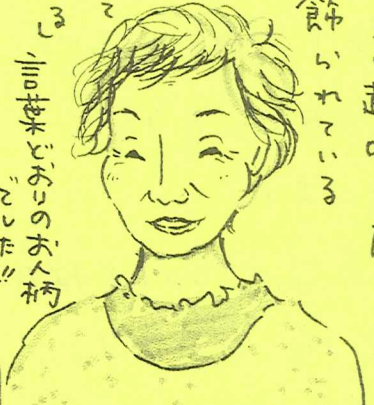 飾られている
て
言葉どおりのお人柄
でした!!